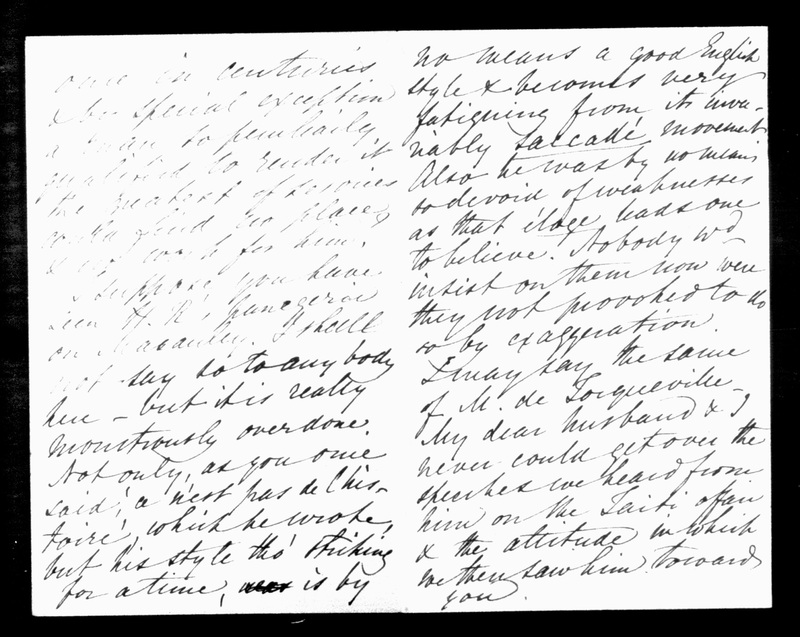 once in centuries
& by special exception
a man so peculiarly
qualified to render it
the greatest of services
could find no place,
& no work for him.
I suppose you have
seen H. R's panegyric
on Macaulay. I shall
not say so to any body
here - but it is really
monstrously overdone.
Not only, as you once
said, 'ce n'est pas de l'his-
toire', which he wrote,
but his style tho' striking
for a time, is by
no means a good English
style & becomes very
fatiguing from its inva-
riably saccadé movement
Also he was by no means
so devoid of weaknesses
as that éloge leads one
to believe. Nobody wd
insist on them now were
they not provoked to do
so by exaggeration.
I may say the same
of M. de Tocqueville -
My dear husband & I
never could get over the
speeches we heard from
him on the Taiti affair
& the attitude in which
we then saw him toward
you.